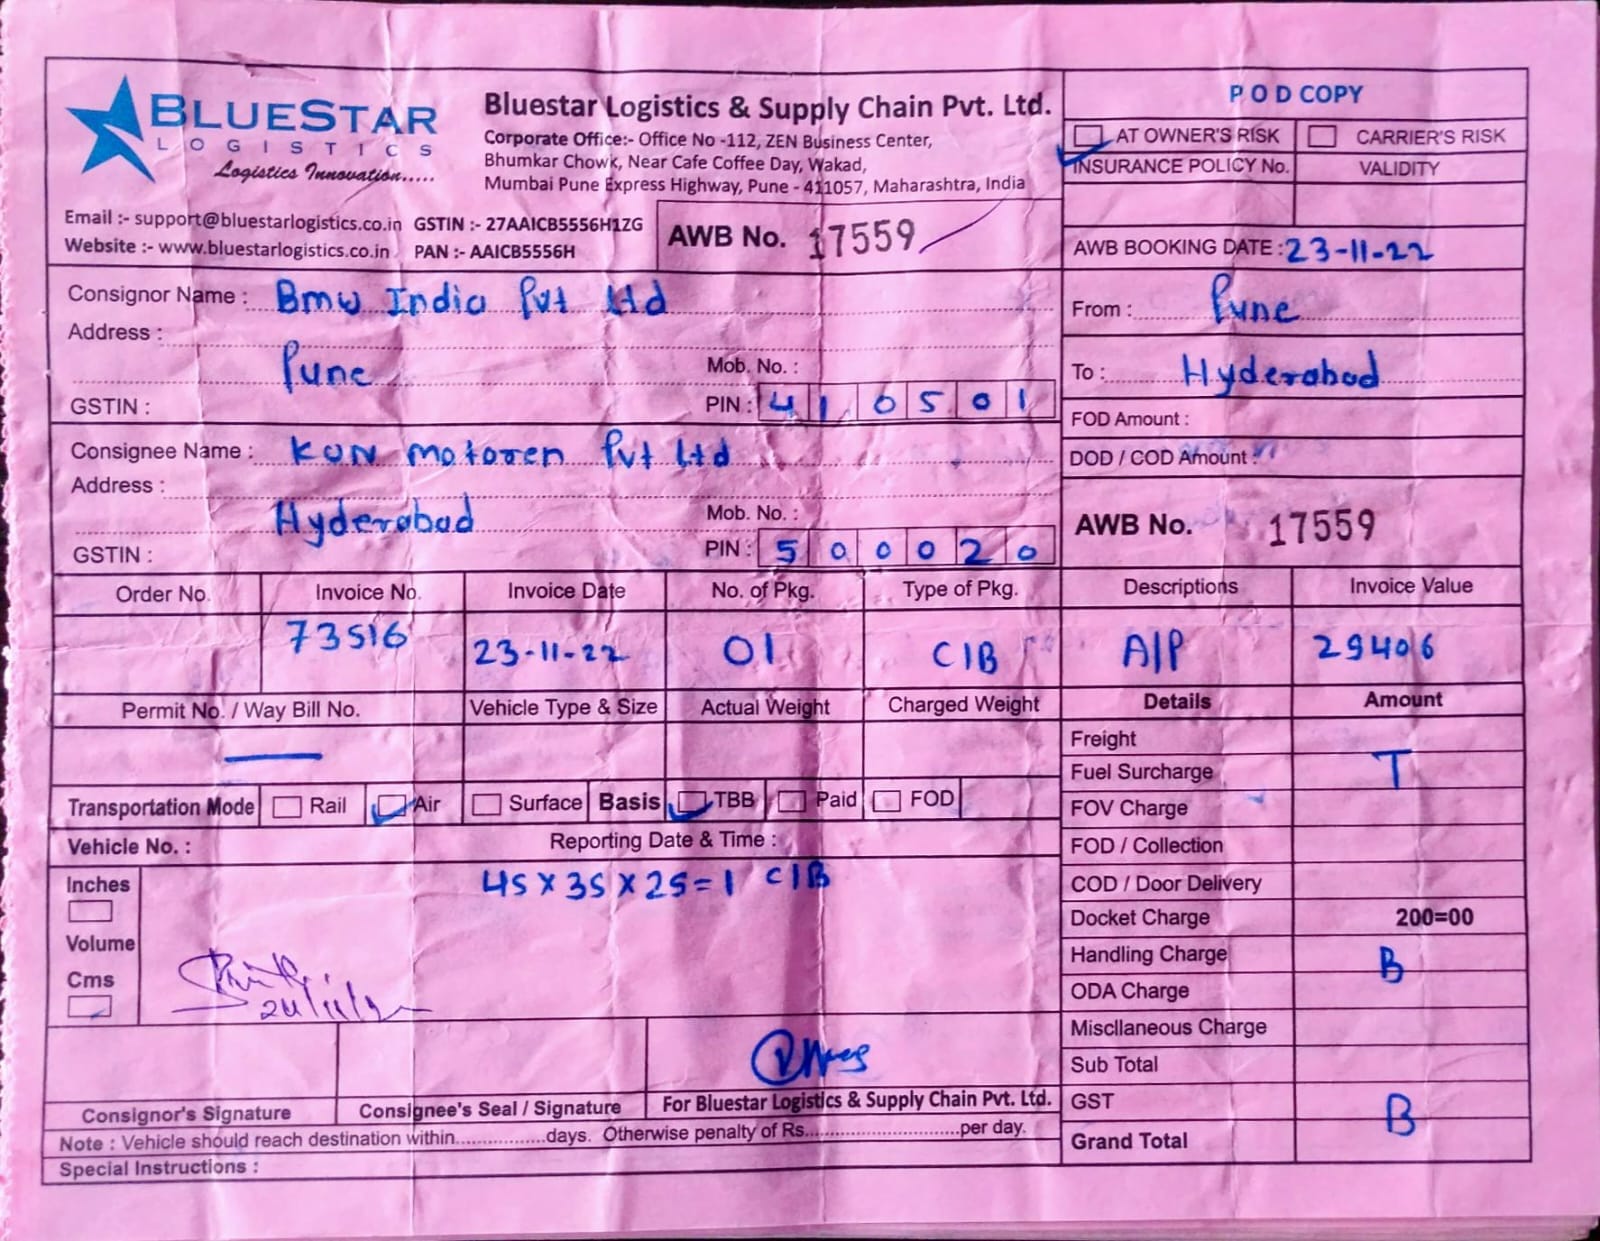 BLUESTAR
LOGISTICS
Logistics Innovation.....
Bluestar Logistics & Supply Chain Pvt. Ltd.
Corporate Office:- Office No -112, ZEN Business Center,
Bhumkar Chowk, Near Cafe Coffee Day, Wakad,
Mumbai Pune Express Highway, Pune - 411057, Maharashtra, India
Email :- support@bluestarlogistics.co.in GSTIN :- 27AAICB5556H1ZG
Website :- www.bluestarlogistics.co.in PAN :- AAICB5556H
AWB No. 17559
POD COPY
AT OWNER'S RISK CARRIER'S RISK
INSURANCE POLICY No. VALIDITY
AWB BOOKING DATE : 23-11-22
Consignor Name : Bmw India Pvt Ltd
Address :
Pune
Mob. No. :
GSTIN : PIN : 410501
From : Pune
To : Hyderabad
FOD Amount :
DOD / COD Amount :
Consignee Name : KUN motoren Pvt Ltd
Address :
Hyderabad
Mob. No. :
GSTIN : PIN : 500020
AWB No. 17559
Order No. Invoice No. Invoice Date No. of Pkg. Type of Pkg. Descriptions Invoice Value
73516 23-11-22 01 C/B A/P 29406
Permit No. / Way Bill No. Vehicle Type & Size Actual Weight Charged Weight Details Amount
—
Freight
Fuel Surcharge T
Transportation Mode Rail Air Surface Basis TBB Paid FOD
FOV Charge
Vehicle No. : Reporting Date & Time :
FOD / Collection
Inches
45 x 35 x 25 = 1 C/B
COD / Door Delivery
Volume
Docket Charge 200=00
Cms
Handling Charge B
ODA Charge
Miscllaneous Charge
Sub Total
Consignor's Signature Consignee's Seal / Signature For Bluestar Logistics & Supply Chain Pvt. Ltd.
GST B
Note : Vehicle should reach destination within.................days. Otherwise penalty of Rs............................per day.
Grand Total
Special Instructions :